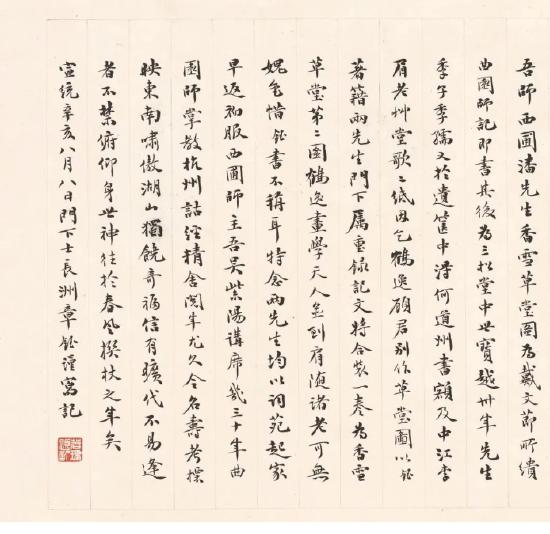 吾師西圃潘先生香雪草堂圖為戴文節所繢
曲園師記即書其後為三松堂中世寶越卅年先生
季子季孺又於遺篋中得何道州書額及中江李
眉老艸堂歌之紙因乞鶴逸顧君別作草堂圖以鈺
著籍兩先生門下屬重錄記文特合裝一卷為香雪
草堂第二圖鶴逸畫學天人並到肩隨諸老可無
媿色惜鈺書不稱耳特念兩先生均以詞苑起家
早返初服西圃師主吾吳紫陽講席幾三十年曲
園師掌教杭州詁經精舍閱年尤久令名壽考操
映東南嘯傲湖山獨饒奇福信有曠代不易逢
者不禁俯仰身世神往於春風撰杖之年矣
宣統辛亥八月八日門下士長洲章鈺謹寫記